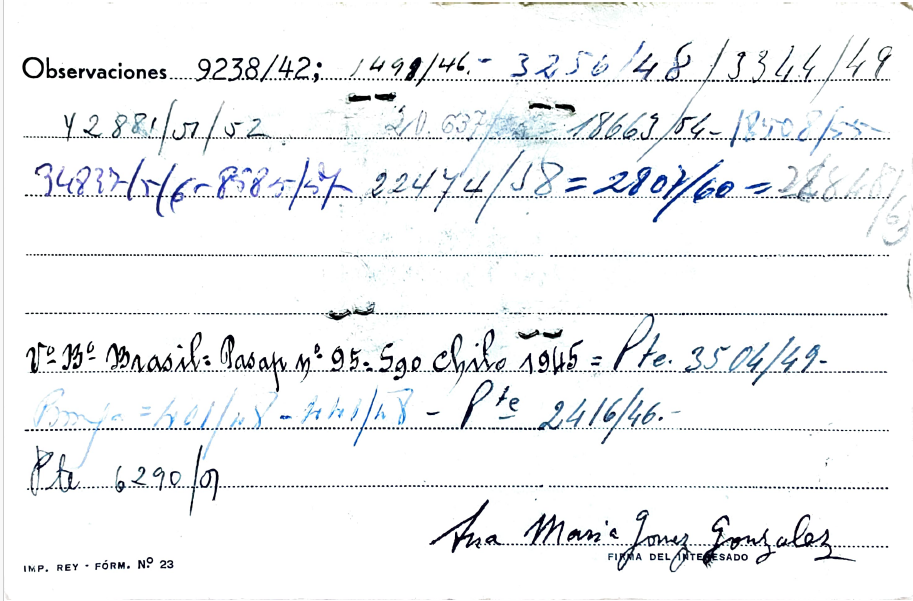 Observaciones 9238/42; 1499/46.- 3256/48/3344/49
42881/51/52 20.637/ = 18663/54- 18508/55-
34837/5/6- 8585/57- 22474/58 = 2807/60 =
Vº Bº Brasil= Pasap nº 95- Sgo Chile 1945 = Pte. 3504/49-
- Pte 2416/46.-
Pte 6290/51
Ana Maria Gomez Gonzalez
FIRMA DEL INTERESADO
IMP. REY - FÓRM. Nº 23